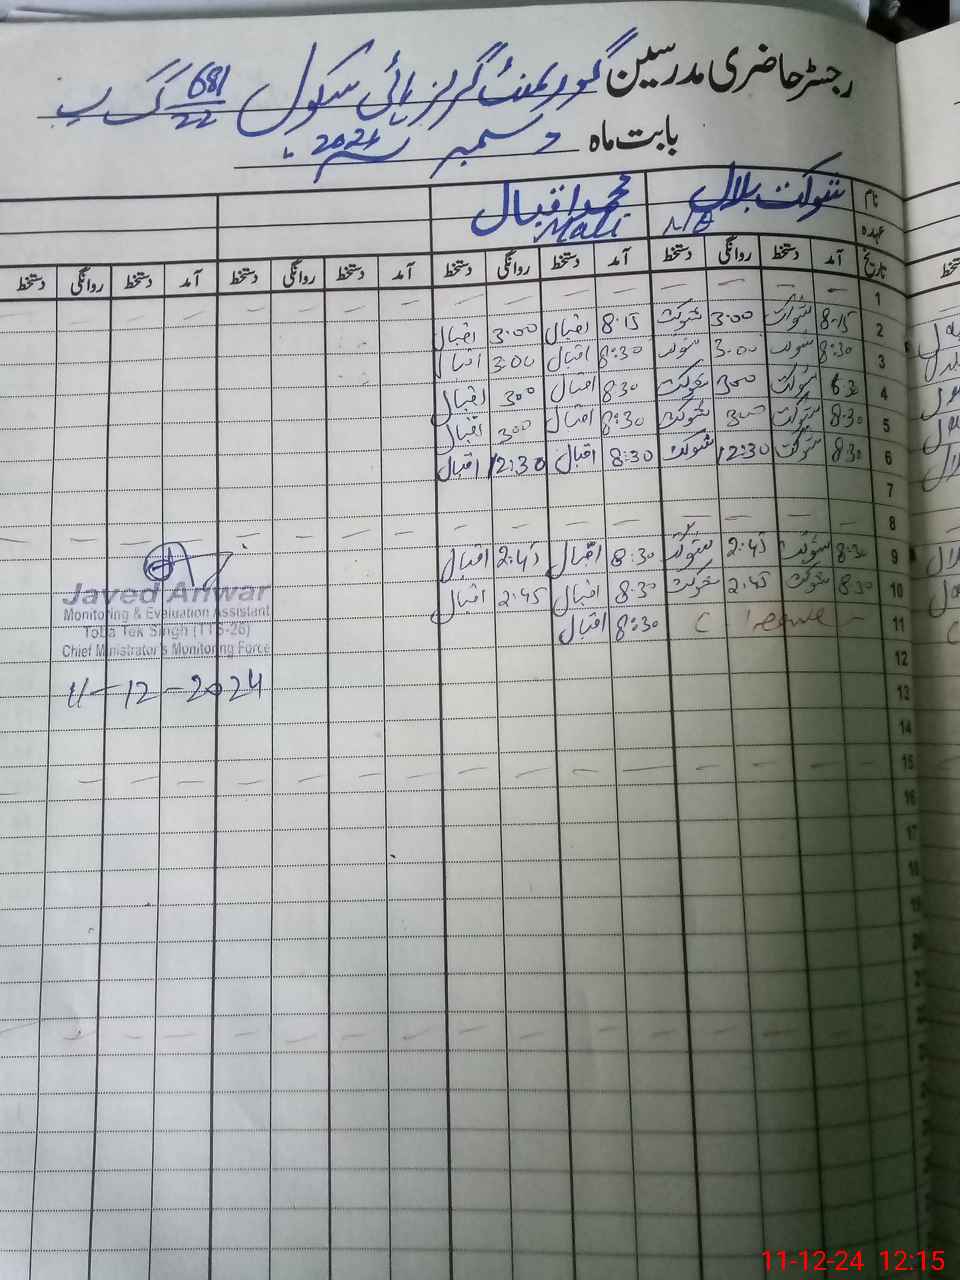 رجسٹر حاضری مدرسین گورنمنٹ گرلز ہائی سکول 681/22 گ ب
بابت ماہ دسمبر 2024ء
نام شوکت بلال محمد اقبال
عہدہ Mali
تاریخ آمد دستخط روانگی دستخط آمد دستخط روانگی دستخط آمد دستخط روانگی دستخط آمد دستخط روانگی دستخط
1 — — — — — — — — — — — — — — — —
2 8-15 شوکت 3:00 شوکت 8:15 اقبال 3:00 اقبال
3 8:30 شوکت 3:00 شوکت 8:30 اقبال 3:00 اقبال
4 شوکت 300 شوکت 830 اقبال 300 اقبال
5 8:30 شوکت 300 شوکت 8:30 اقبال 300 اقبال
6 8:30 شوکت 12:30 شوکت 8:30 اقبال 12:30 اقبال
7
8 — — — — — — — — — — — — — — — —
9 8:30 شوکت 2:45 شوکت 8:30 اقبال 2:45 اقبال
10 8:30 شوکت 2:45 شوکت 8:30 اقبال 2:45 اقبال
11 C leave 8:30 اقبال
12
13
14
15 — — — — — — — — — — — — — — —
16
17
18
19
Javed Anwar
Monitoring & Evaluation Assistant
Toba Tek Singh (TTS-26)
Chief Minister's Monitoring Force
11-12-2024
11-12-24 12:15